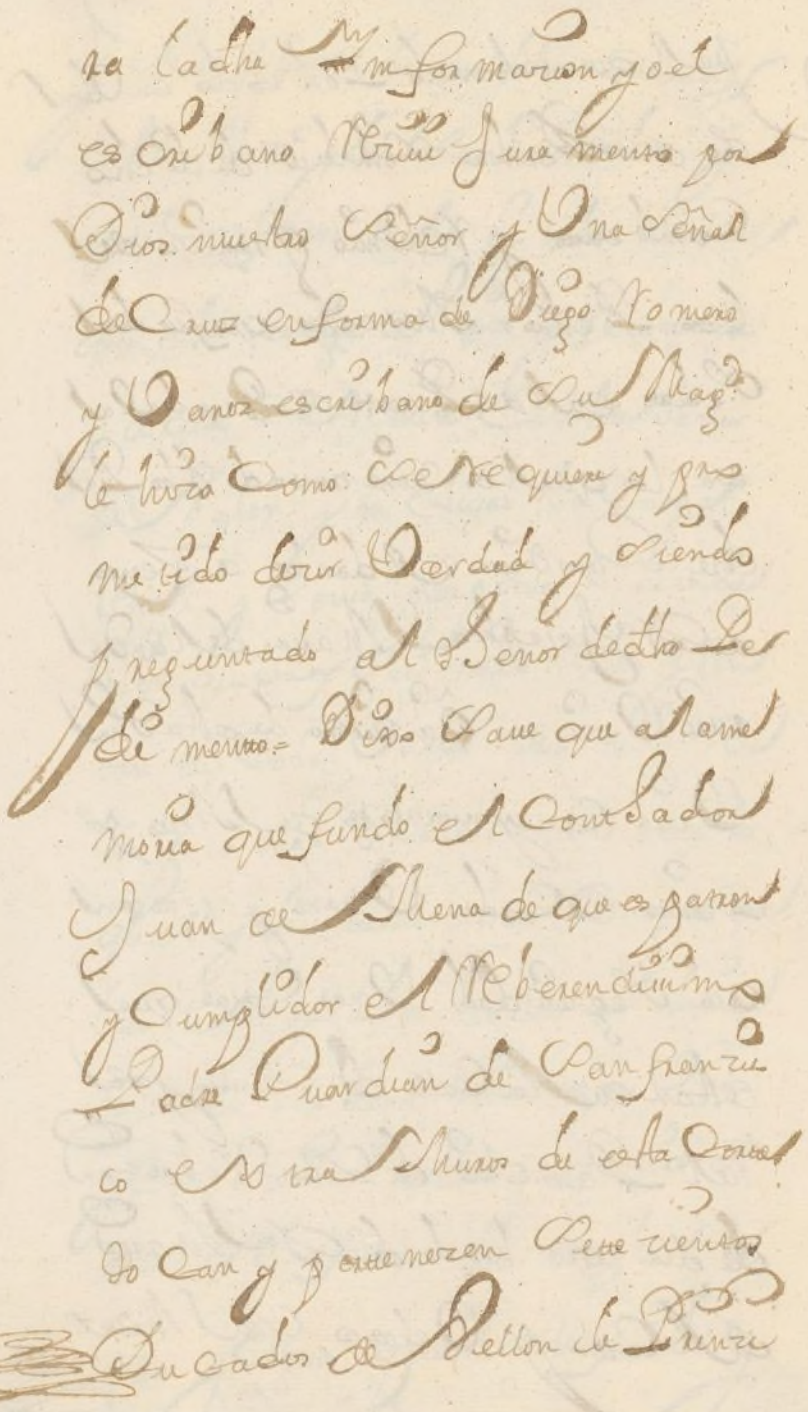 ra la dha Ynformazion yo el
escribano Rezivi Juramento por
Dios nuestro Señor y Una Señal
de Cruz en forma de Diego Romero
y Vanoz escribano de Su Magd
le hizo Como Se Requiere y pro
metido dezir Verdad y Siendo
preguntado al thenor de dho Pe
dimento = Dixo Save que a la me
moria que fundo el Contador
Juan de Mena de que es patron
y Cumplidor el Reberendisimo
Padre Guardian de San franzis
co Extra Muros de esta Corte
tocan y pertenezen Setezientos
Ducados de Vellon de Prinzi